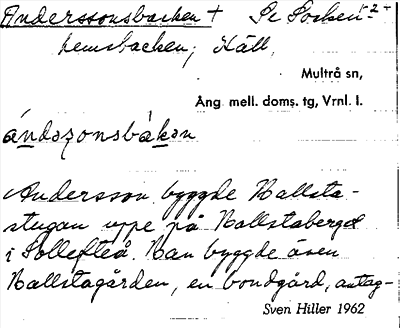 Anderssonsbacken + Se Socken- -2-
hemsbacken; Häll,
Multrå sn,
Ång. mell. doms. tg, Vrnl. l.
ándəʂonsbàkən
Andersson byggde Hallsta-
stugan uppe på Hallstaberget
i Sollefteå. Han byggde även
Hallstagården, en bondgård, antag-
Sven Hiller 1962